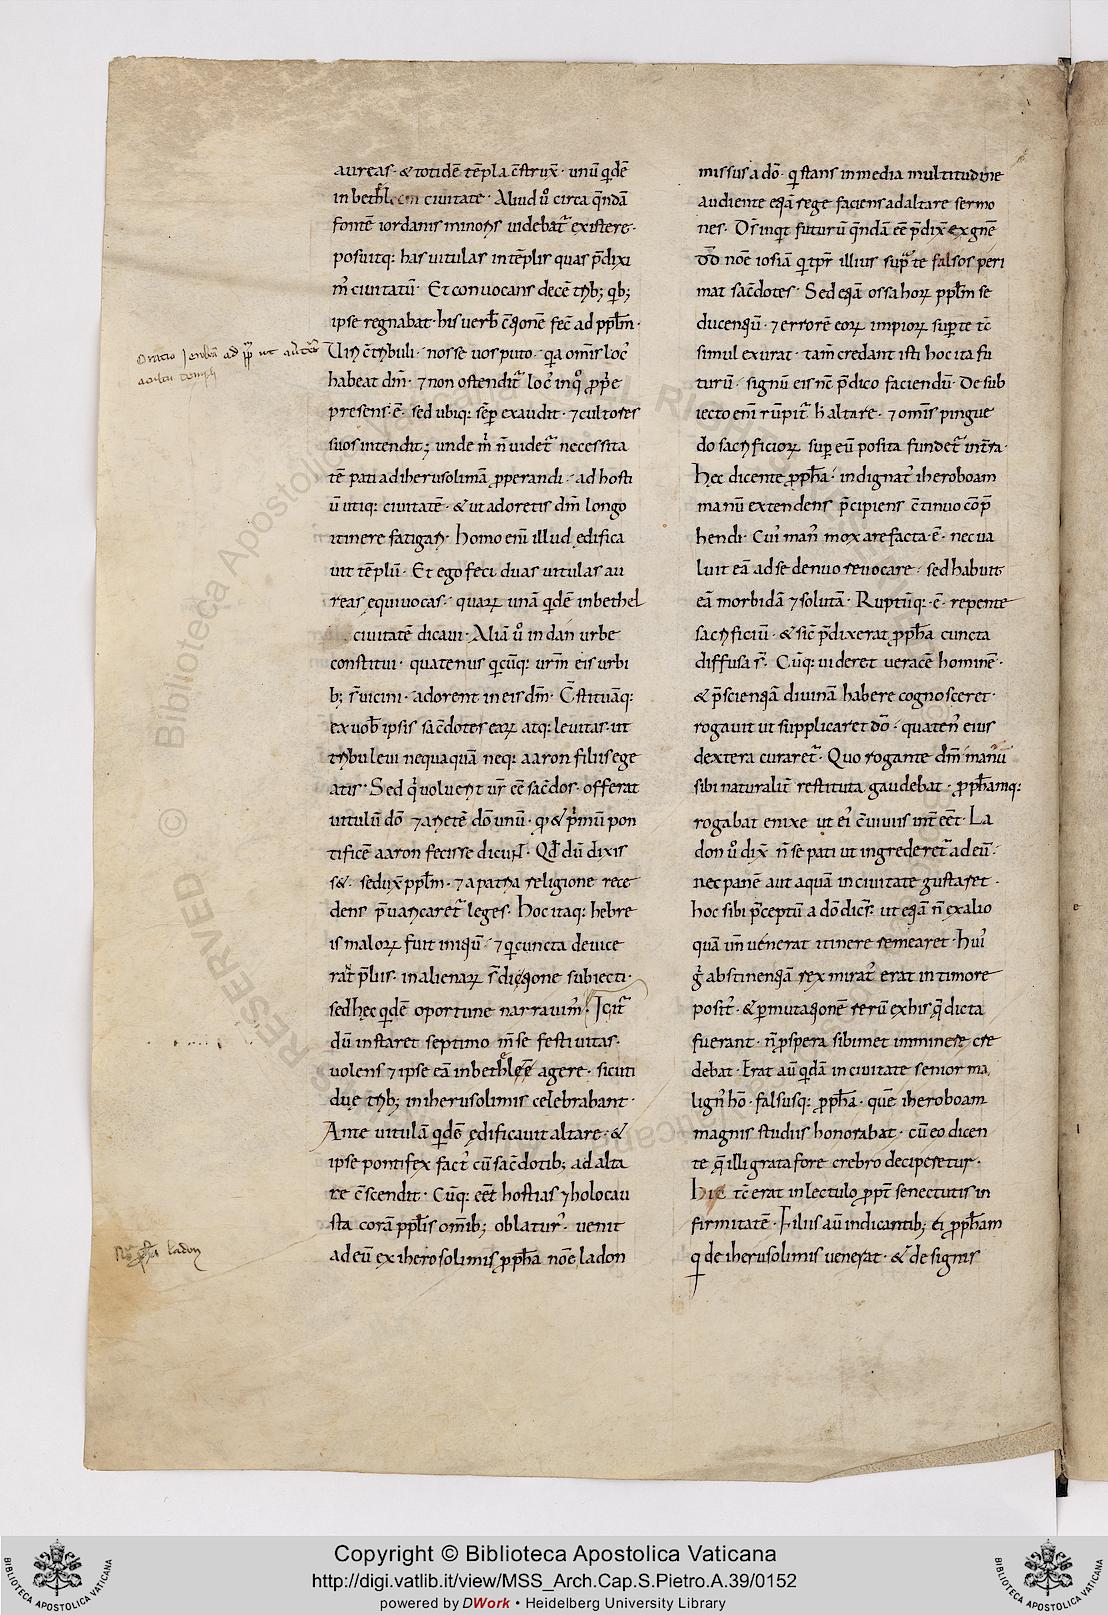 aureas· & totidē tēpla c̄strux̄· unū qͥdē
in bethleem ciuitate· Aliud ū circa q̄ndā
fontē iordanis minoris uidebat̄ existere·
posuitq: has uitulas in tēplis quas p̄dixi
m̄ ciuitatū· Et conuocans decē trib; qͥb;
ipse regnabat· his uerb̄ c̄tionē fec̄ ad pplm̄·
Viri c̄tribuli· nosse uos puto· qͥa om̄is loc̄
habeat dm̄· ⁊ non ostendit̄ loc̄ in qͦ ꝓp̄e
presens· ē· sed ubiq: sēp exaudit· ⁊ cultores
suos intendit; unde m̄ n̄ uidet̄ necessita
tē pati ad iherusolimā ꝓperandi· ad hosti
ū utiq: ciuitatē· & ut adoretis dm̄ longo
itinere fatigari· homo enī illud ędifica
uit tēplū· Et ego feci duas uitulas au
reas ęquiuocas· quarꝝ unā qͥdē in bethel
ciuitatē dicaui· Aliā ū in dan urbe
constitui· quatenus qͥcūq: urm̄ eis urbi
b; s̄ uicini· adorent in eis dm̄· C̄stituāq:
ex uob̄ ipsis sac̄dotes earꝝ atq: leuitas· ut
tribu leui nequaquā neq: aaron filiis ege
atis· Sed qͥ uoluerit ur̄ ēē sac̄dos· offerat
uitulū dō ⁊ arietē dō unū· qͦ & pͥmū pon
tificē aaron fecisse dicunt· Qd̄ dū dixis
s&· sedux̄ pplm̄· ⁊ a patria religione rece
dens p̄uaricaret̄ leges· hoc itaq: hebre
is malorꝝ fuit initiū· ⁊ qͥ cuncta deuice
rāt p̄lus· in alienarꝝ s̄ ditione subiecti·
sed hec qͥdē oportune narrauim̄· Igit̄
dū instaret septimo m̄se festiuitas·
uolens ⁊ ipse eā in bethleē agere· sicuti
duę trib; in iherusolimis celebrabant·
Ante uitulā qͥdē ędificauit altare· &
ipse pontifex fact̄ cū sac̄dotib; ad alta
re c̄scendit· Cūq: eēt hostias ⁊ holocau
sta corā pplis om̄ib; oblatur̄· uenit
ad eū ex iherosolimis ꝓph̄a noīe ladon
missus a dō· qͥ stans in media multitudine
audiente etiā rege faciens ad altare sermo
nes· Ds̄ inqͥt futurū q̄ndā ēē p̄dix̄ ex gn̄e
dd̄ noīe iosiā qͥ tpr̄ illius supͣ te falsos peri
mat sac̄dotes· Sed etiā ossa horꝝ pplm̄ se
ducentiū· ⁊ errorē eorꝝ impiorꝝ super te tc̄
simul exurat· tam̄ credant isti hoc ita fu
turū· signū eis nc̄ p̄dico faciendū· De sub
iecto enī rūpit̄ h̄ altare· ⁊ om̄is pingue
do sacrificiorꝝ super eū posita fundet̄ in tr̄a·
hec dicente ꝓph̄a· indignat̄ iheroboam
manū extendens p̄cipiens c̄tinuo cōp̄
hendi· Cui̇ man̄ mox arefacta· ē· nec ua
luit eā ad se denuo reuocare· sed habuit
eā morbidā ⁊ solutā· Ruptūq:· ē· repente
sacrificiū· & sic̄ p̄dixerat ꝓph̄a cuncta
diffusa s̄· Cūq: uideret ueracē hominē·
& p̄scientiā diuinā habere cognosceret·
rogauit ut supplicaret dō· quaten̄ eius
dextera curaret̄· Quo rogante dm̄ manū
sibi naturalit̄ restituta gaudebat· ꝓph̄amq:
rogabat enixe ut ei̇ c̄uiuis int̄ eēt· La
don ū dix̄ n̄ se pati ut ingrederet̄ ad eū·
nec panē aut aquā in ciuitate gustaret·
hoc sibi p̄ceptū a dō dic̄s· ut etiā n̄ ex alio
quā un̄ uenerat itinere remearet· hui̇
ḡ abstinentiā rex mirat̄ erat in timore
posit̄· & permutationē rerū ex his q̄ dicta
fuerant· n̄ ꝓspera sibimet imminere cre
debat· Erat aū qͥdā in ciuitate senior ma
lign̄ hō· falsusq: ꝓph̄a· quē iheroboam
magnis studiis honorabat· cū eo dicen
te q̄ illi grata fore crebro deciperetur·
hic tc̄ erat in lectulo ꝓpt̄ senectutis in
firmitatē· Filiis aū indicantib; ei ꝓph̄am
qͥ de iherusolimis uenerat· & de signis
ladon